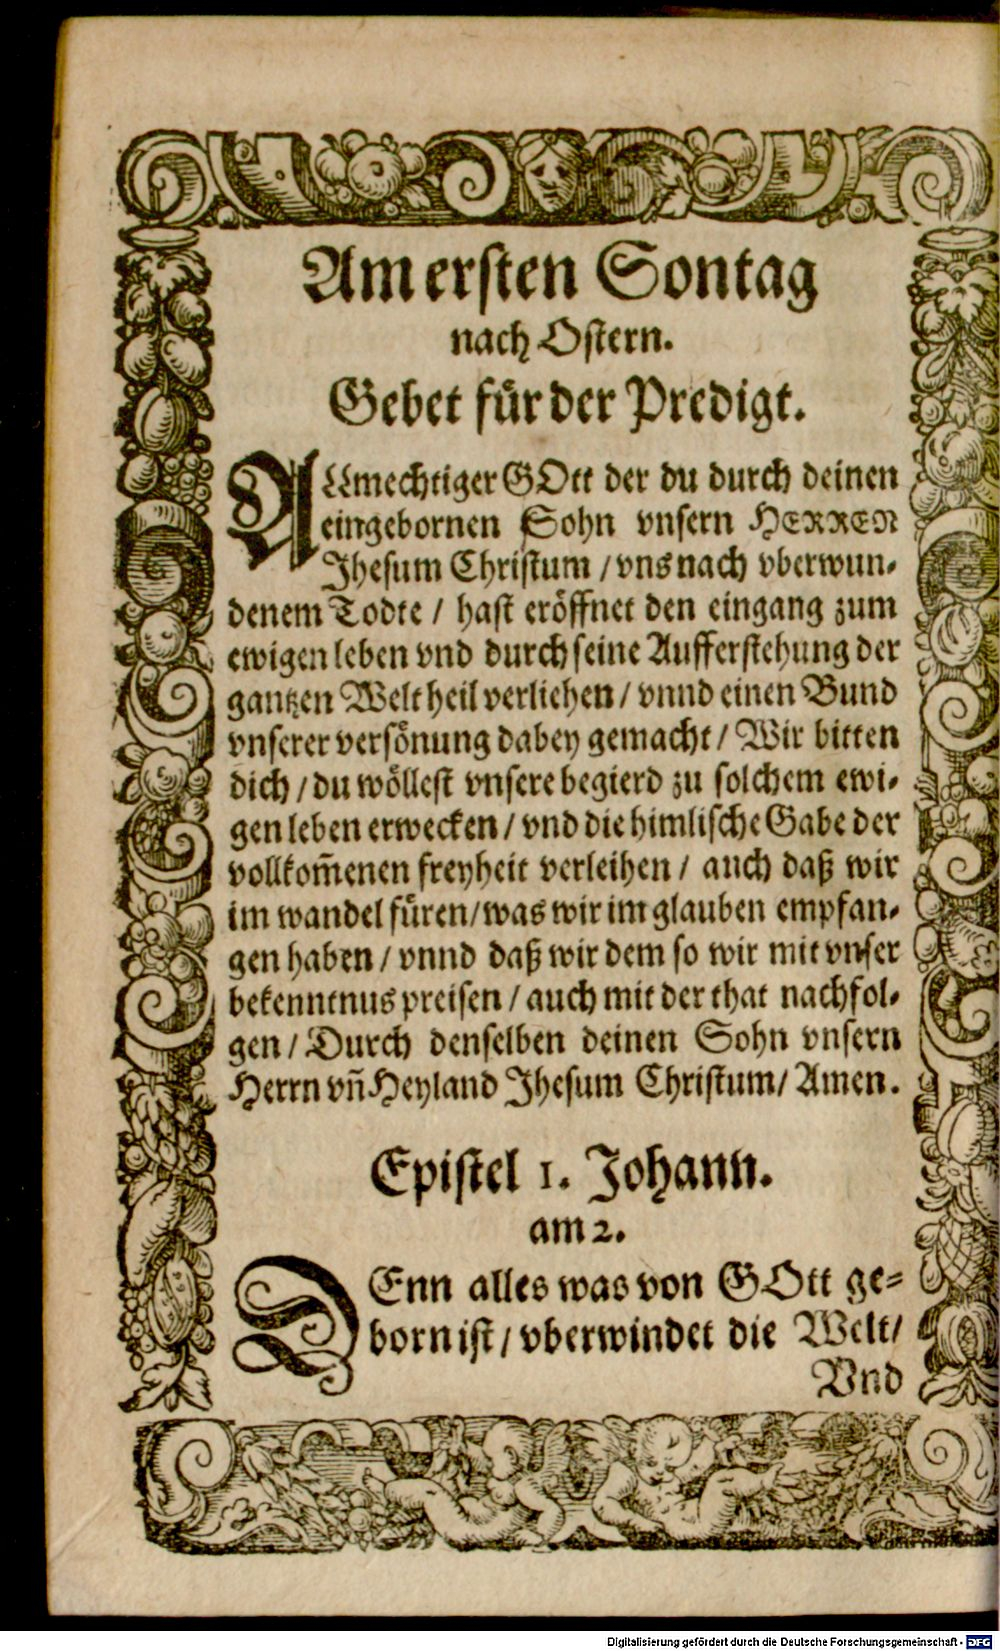 Am ersten Sontag
nach Ostern.
Gebet für der Predigt.
ALlmechtiger GOtt der du durch deinen
eingebornen Sohn vnsern HERREN
Jhesum Christum / vns nach vberwun-
denem Todte / hast eröffnet den eingang zum
ewigen leben vnd durch seine Aufferstehung der
gantzen Welt heil verliehen / vnnd einen Bund
vnserer versönung dabey gemacht / Wir bitten
dich / du wöllest vnsere begierd zu solchem ewi-
gen leben erwecken / vnd die himlische Gabe der
vollkom̃enen freyheit verleihen / auch daß wir
im wandel füren / was wir im glauben empfan-
gen haben / vnnd daß wir dem so wir mit vnser
bekenntnus preisen / auch mit der that nachfol-
gen / Durch denselben deinen Sohn vnsern
Herrn vñ Heyland Jhesum Christum / Amen.
Epistel 1. Johann.
am 2.
DEnn alles was von GOtt ge-
born ist / vberwindet die Welt /
Vnd
Digitalisierung gefördert durch die Deutsche Forschungsgemeinschaft - DFG